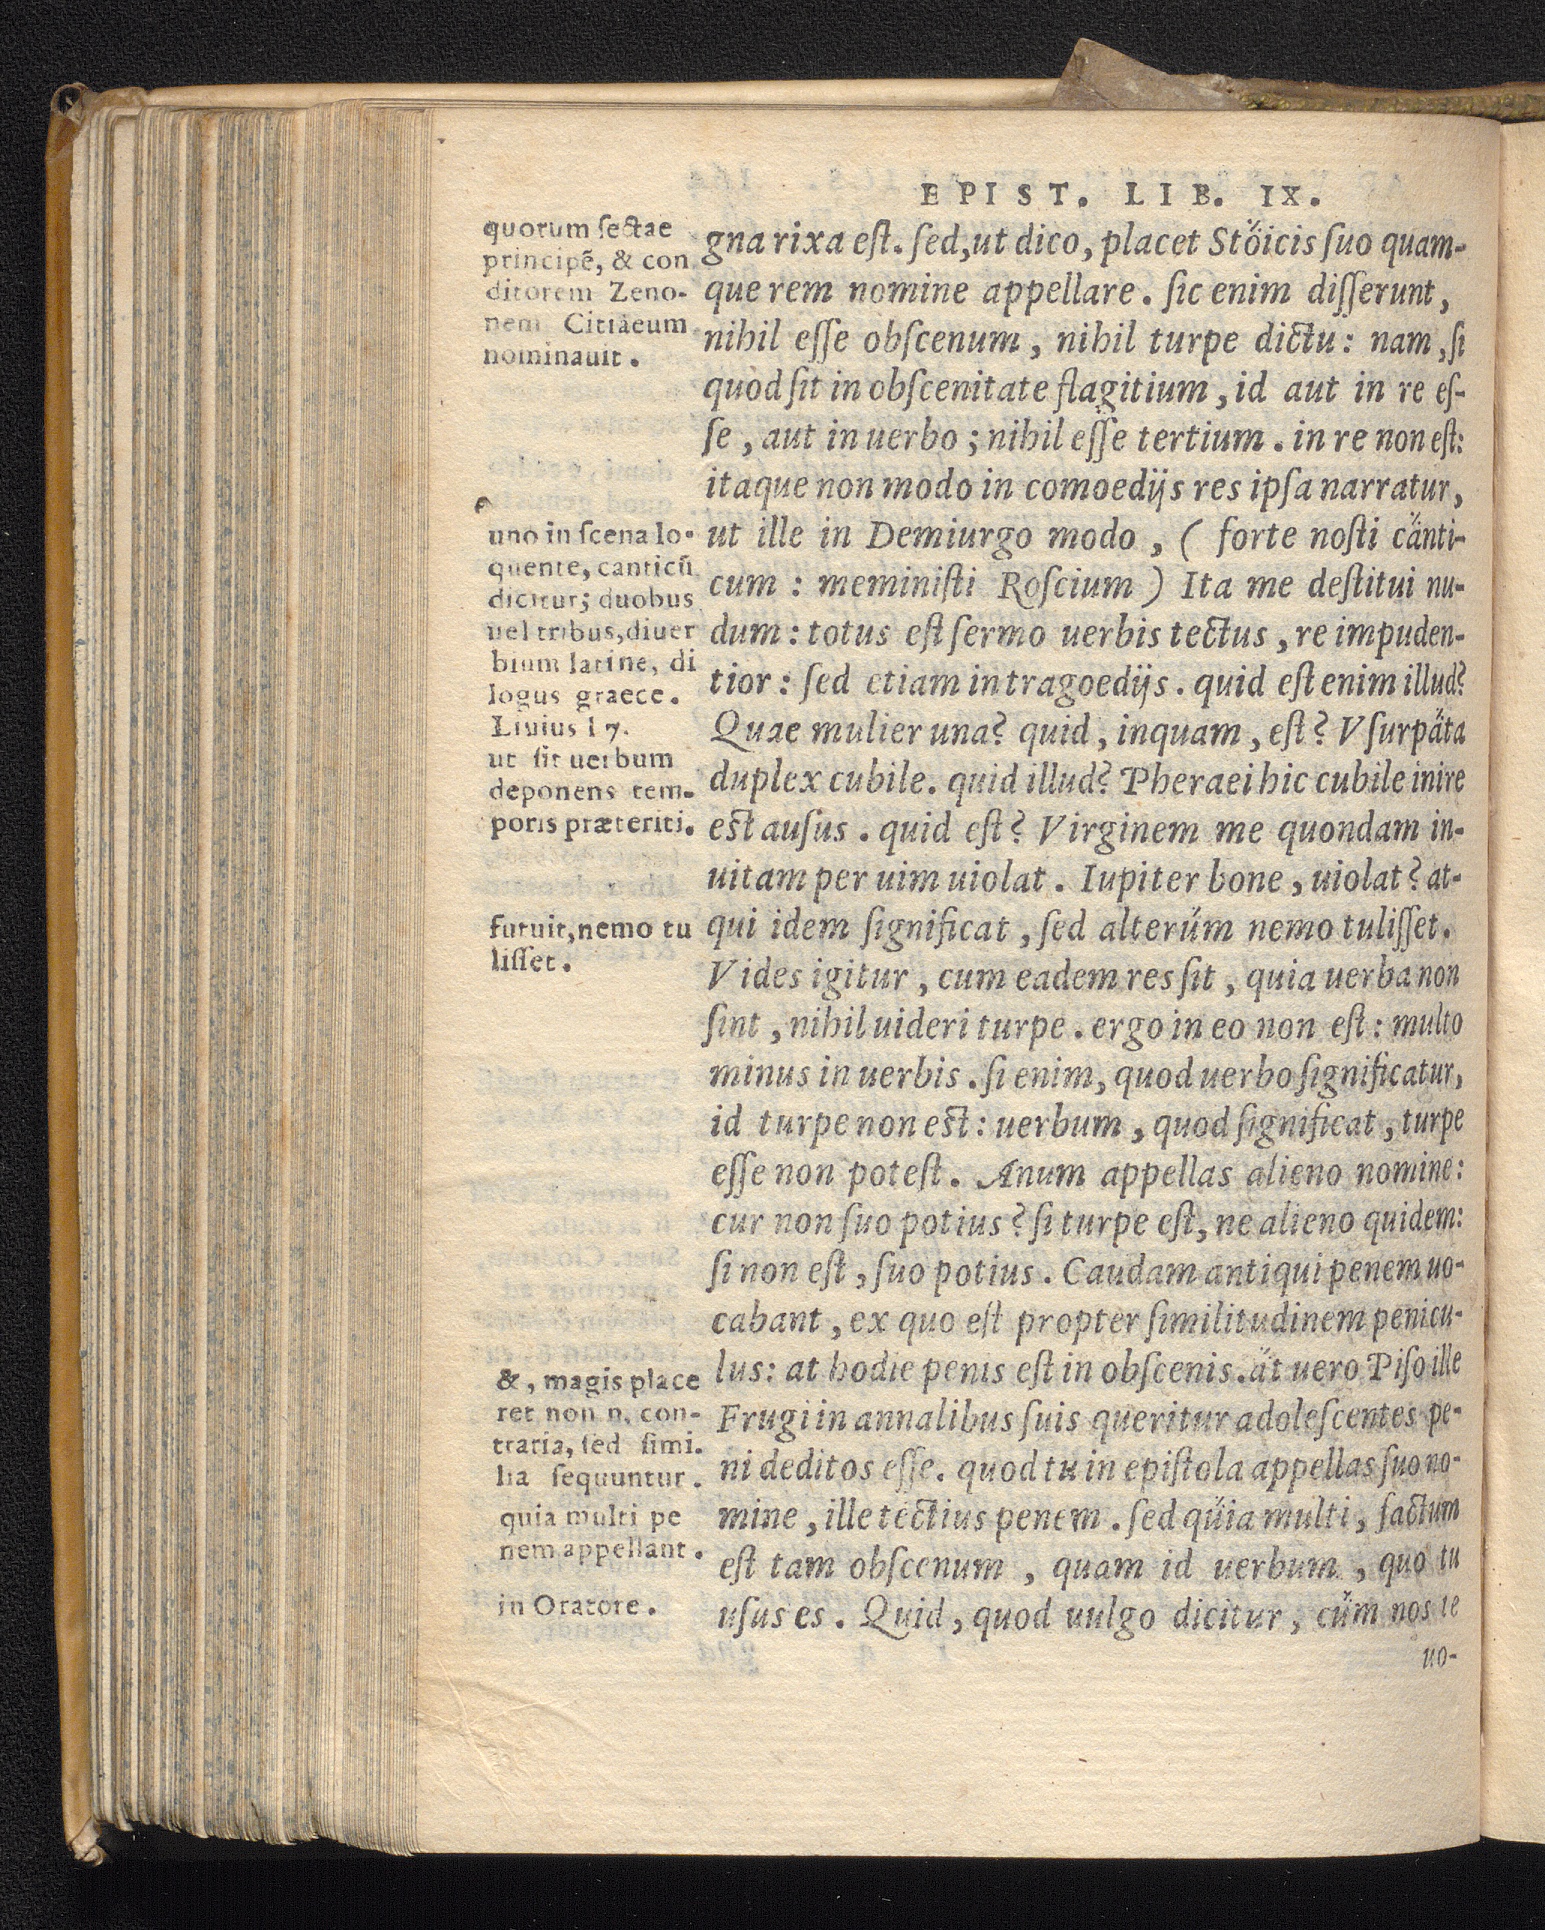 EPIST. LIB. IX.
quorum sectae
principẽ, & con
ditorem Zeno-
nem Cittaeum
nominauit.
uno in scena lo-
quente, canticũ
dicitur; duobus
uel tribus, diuer
bium latine, di
logus graece.
Liuius 17.
ut sit uerbum
deponens tem-
poris præteriti.
futuit, nemo tu
lisset.
&, magis place
ret non n. con-
traria, sed simi.
lia sequuntur.
quia multi pe
nem appellant.
in Oratore.
gna rixa est. sed, ut dico, placet Stöicis suo quam-
que rem nomine appellare. sic enim disserunt,
nihil esse obscenum, nihil turpe dictu: nam, si
quod sit in obscenitate flagitium, id aut in re es-
se, aut in uerbo; nihil esse tertium. in re non est:
itaque non modo in comoedijs res ipsa narratur,
ut ille in Demiurgo modo, ( forte nosti cänti-
cum: meministi Roscium ) Ita me destitui nu-
dum: totus est sermo uerbis tectus, re impuden-
tior: sed etiam in tragoedijs. quid est enim illud?
Quae mulier una? quid, inquam, est? Vsurpäta
duplex cubile. quid illud? Pheraei hic cubile inire
est ausus. quid est? Virginem me quondam in-
uitam per uim uiolat. Iupiter bone, uiolat? at-
qui idem significat, sed alterüm nemo tulisset.
Vides igitur, cum eadem res sit, quia uerba non
sint, nihil uideri turpe. ergo in eo non est: multo
minus in uerbis. si enim, quod uerbo significatur,
id turpe non est: uerbum, quod significat, turpe
esse non potest. Anum appellas alieno nomine:
cur non suo potius? si turpe est, ne alieno quidem:
si non est, suo potius. Caudam antiqui penem uo-
cabant, ex quo est propter similitudinem penicu-
lus: at hodie penis est in obscenis. ät uero Piso ille
Frugi in annalibus suis queritur adolescentes pe-
ni deditos esse. quod tu in epistola appellas suo no-
mine, ille tectius penem. sed qüia multi, factum
est tam obscenum, quam id uerbum, quo tu
usus es. Quid, quod uulgo dicitur, cüm nos te
uo-